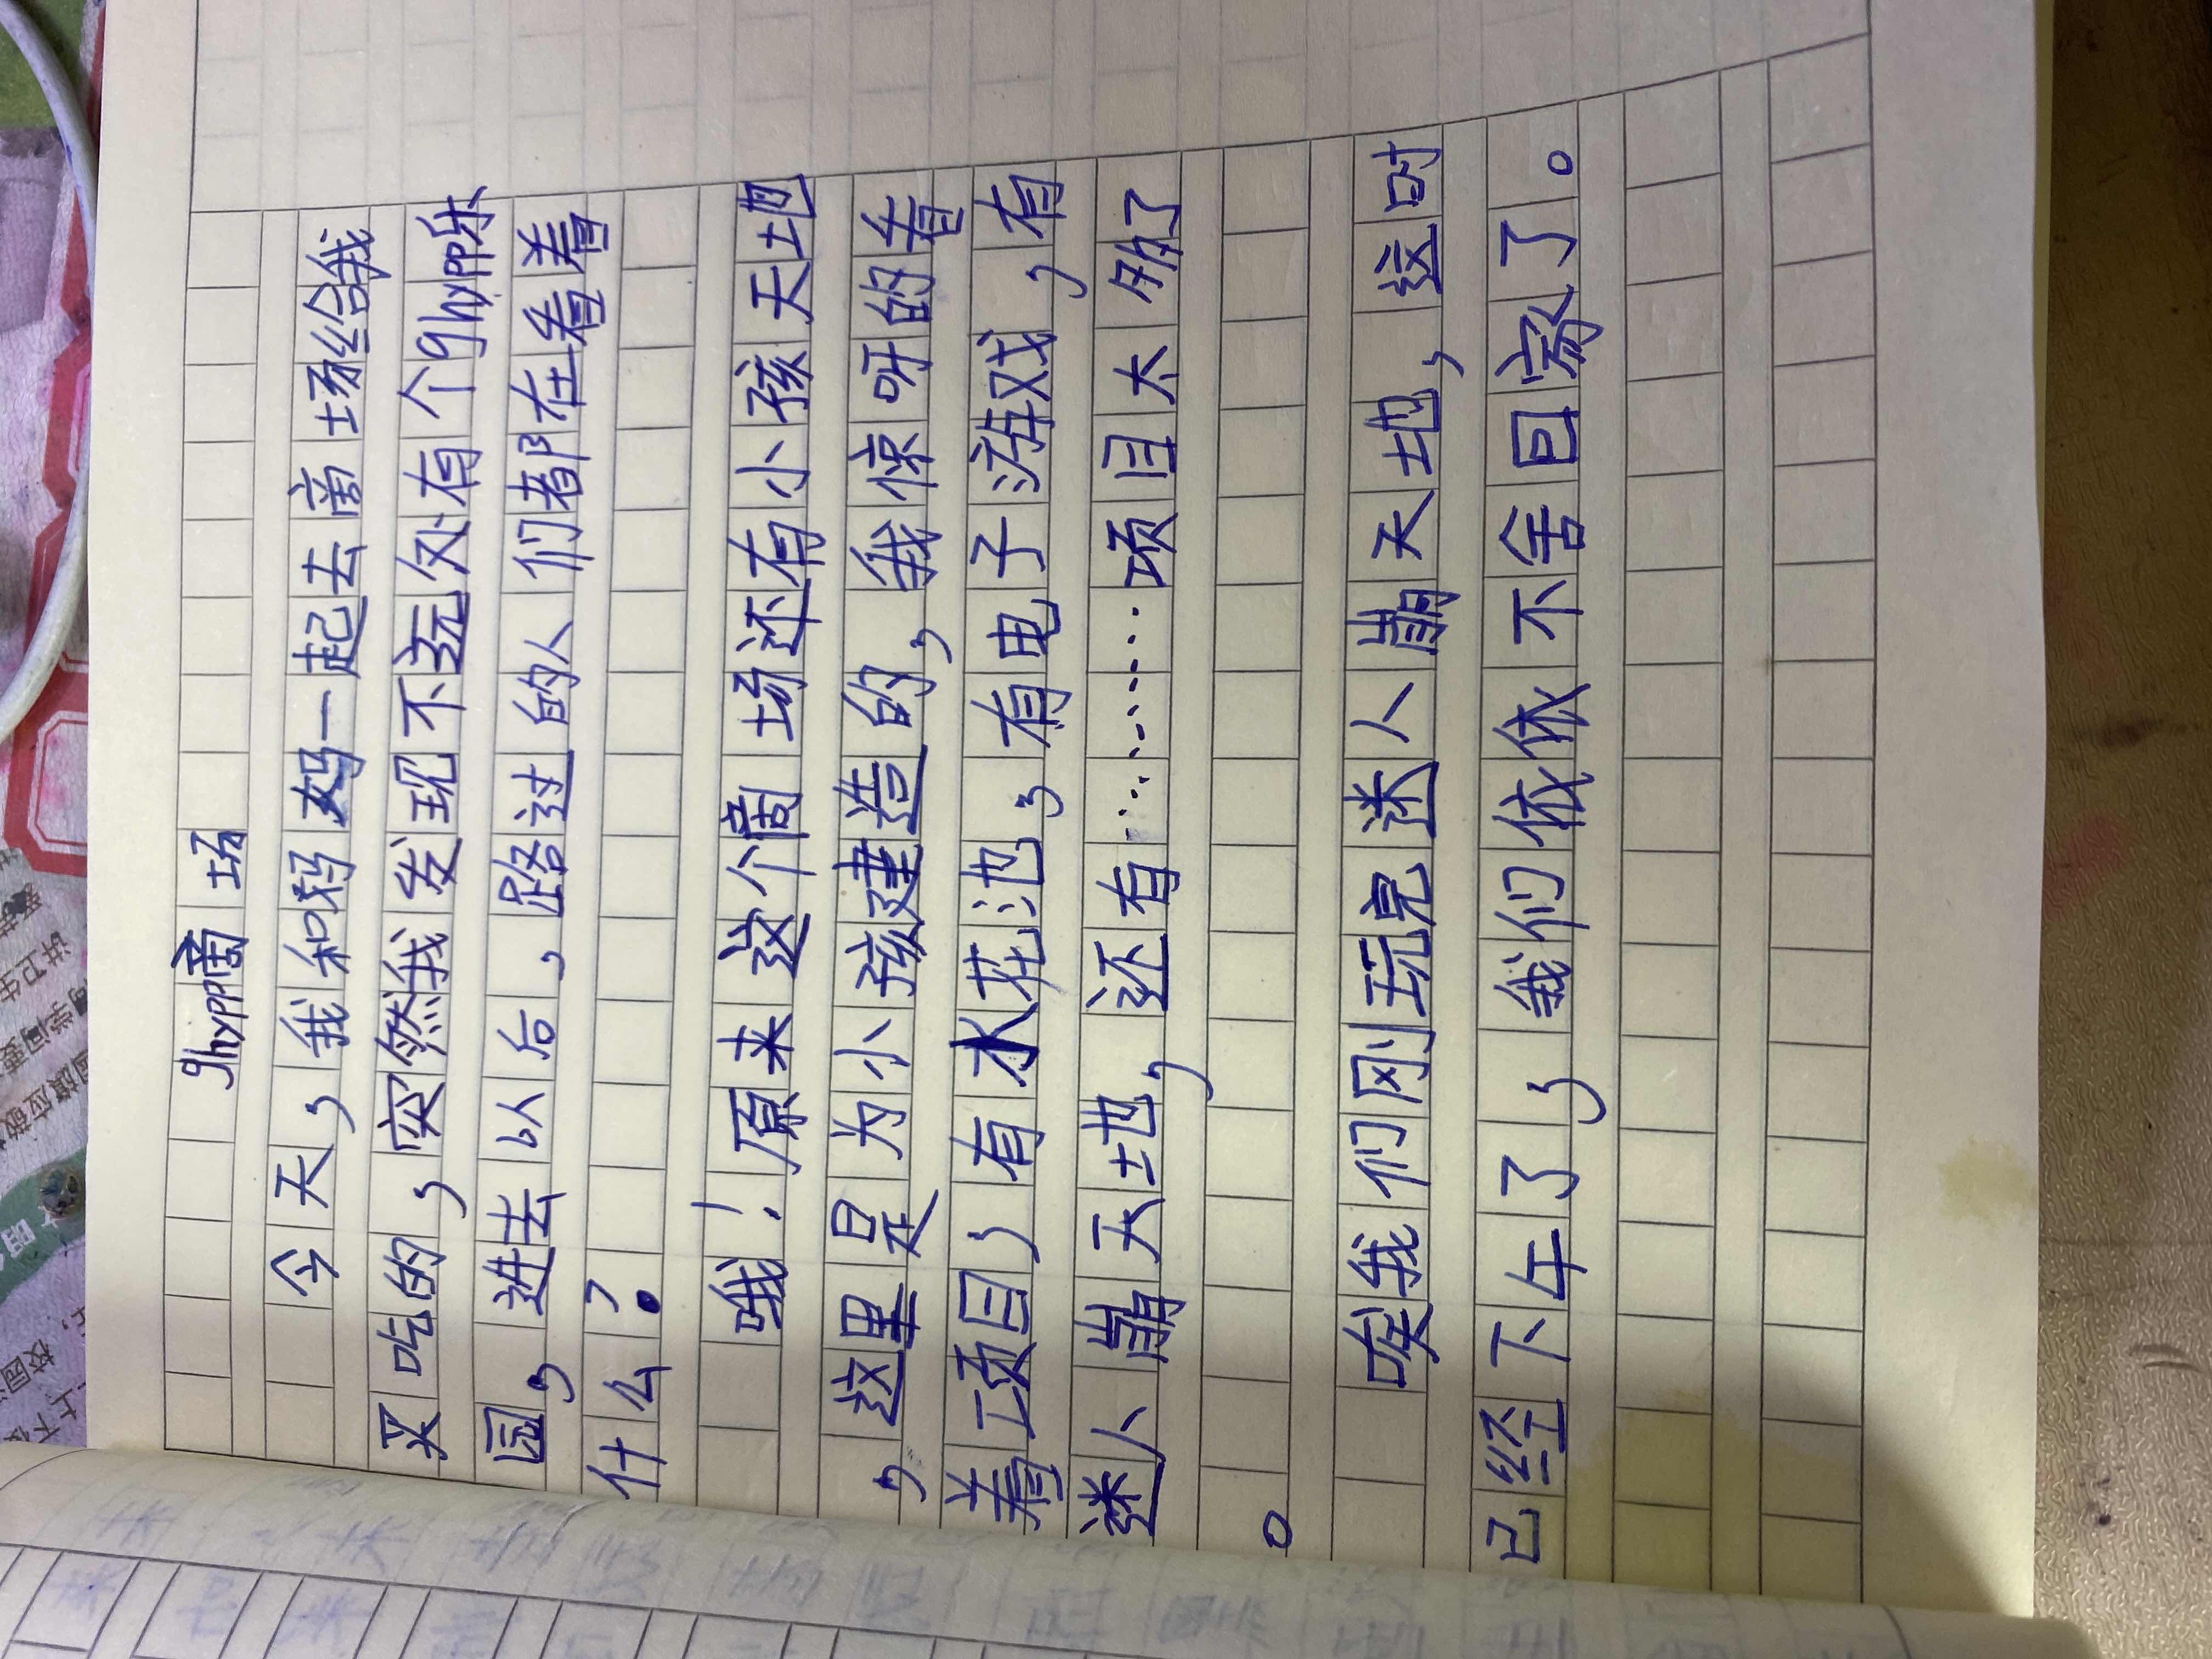 ghypp商场
今天，我和妈妈一起去商场给我
买吃的，突然我发现不远处有个ghypp乐
园，进去以后，路过的人们都在看着
什么？
哦！原来这个商场还有小孩天地
，这里是为小孩建造的，我惊呀的看
着项目，有水花池，有电子游戏，有
迷人崩天地，还有············项目太多了
。
唉我们刚玩完迷人崩天地，这时
已经下午了，我们依依不舍回家了。